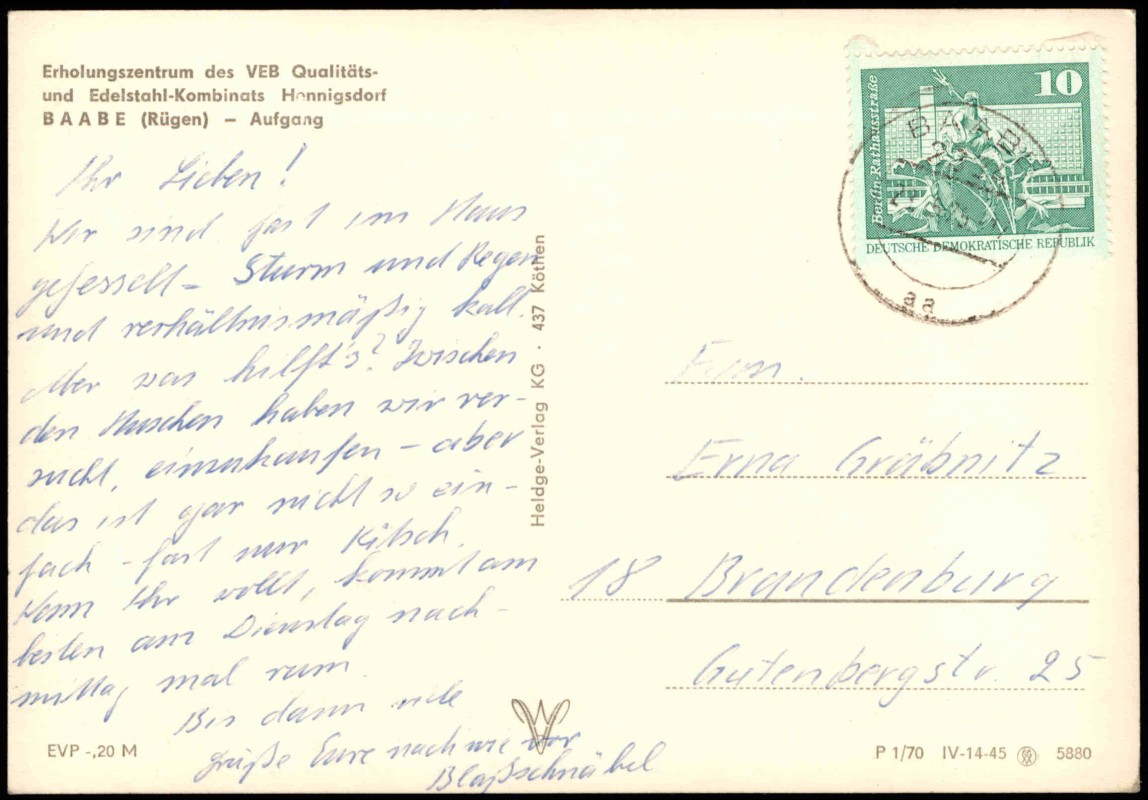 Erholungszentrum des VEB Qualitäts-
und Edelstahl-Kombinats Hennigsdorf
BAABE (Rügen) – Aufgang
Ihr Lieben!
Wir sind fast im Haus
gefesselt – Sturm und Regen
und verhältnismäßig kalt.
Aber was hilft's? Zwischen
den Huschen haben wir ver-
sucht, einzukaufen – aber
das ist gar nicht so ein-
fach – fast nur Kitsch.
Wenn Ihr wollt, kommt am
besten am Dienstag nach-
mittag mal rum.
Bis dann viele
Grüße Eure nach wie vor
Blaßschnäbel
EVP -,20 M
Heldge-Verlag KG · 437 Köthen
10
Berlin-Rathausstraße
DEUTSCHE DEMOKRATISCHE REPUBLIK
BAABE
aa
Fam.
Erna Gräbnitz
18 Brandenburg
Gutenbergstr. 25
P 1/70 IV-14-45 5880